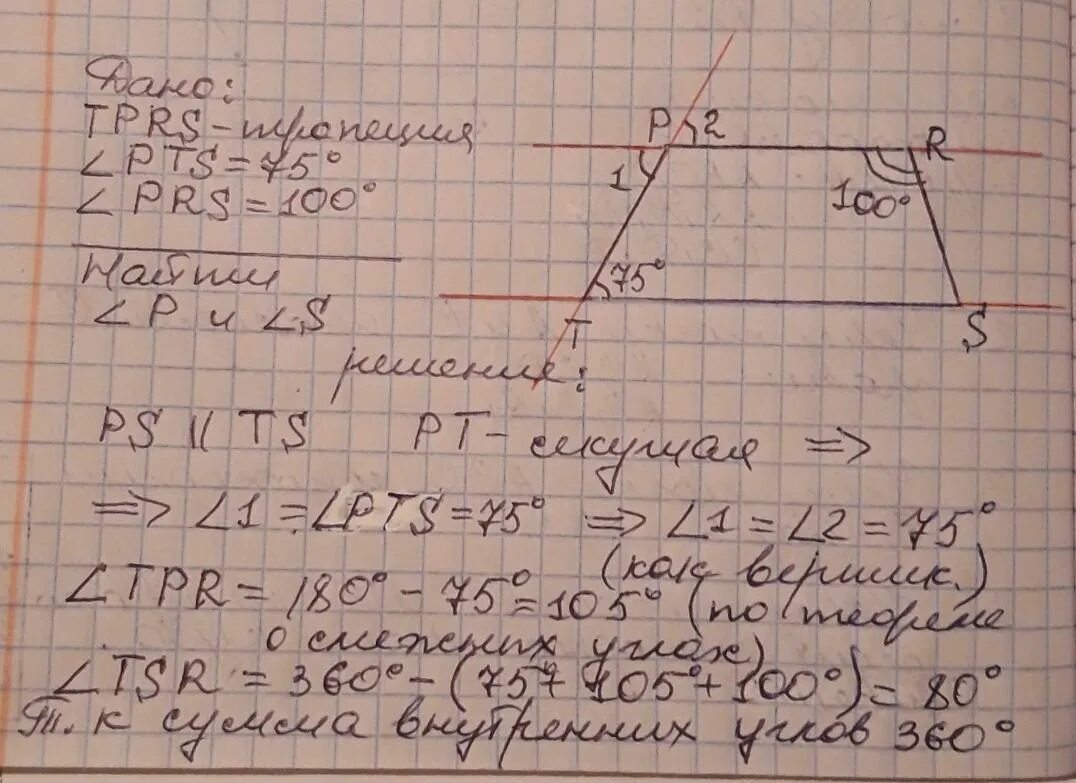 Дано:
TPRS - трапеция
∠PTS = 75°
∠PRS = 100°
Найти
∠P и ∠S
P 2 R
1 100°
75°
T S
решение:
PS || TS PT - секущая =>
=> ∠1 = ∠PTS = 75° => ∠1 = ∠2 = 75°
(как вертик.)
∠TPR = 180° - 75° = 105° (по теореме
о смежных углах)
∠TSR = 360° - (75° + 105° + 100°) = 80°
т. к сумма внутренних углов 360°